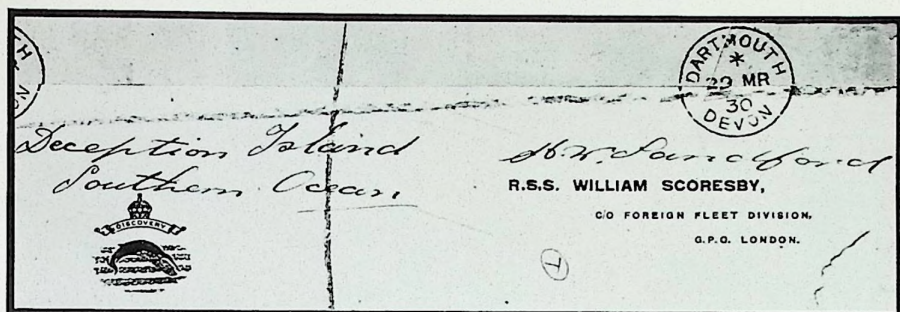 DARTMOUTH
*
29 MR
30
DEVON
Deception Island
Southern Ocean
H.W. Sandford
R.S.S. WILLIAM SCORESBY,
C/O FOREIGN FLEET DIVISION,
G.P.O. LONDON.
DISCOVERY
T